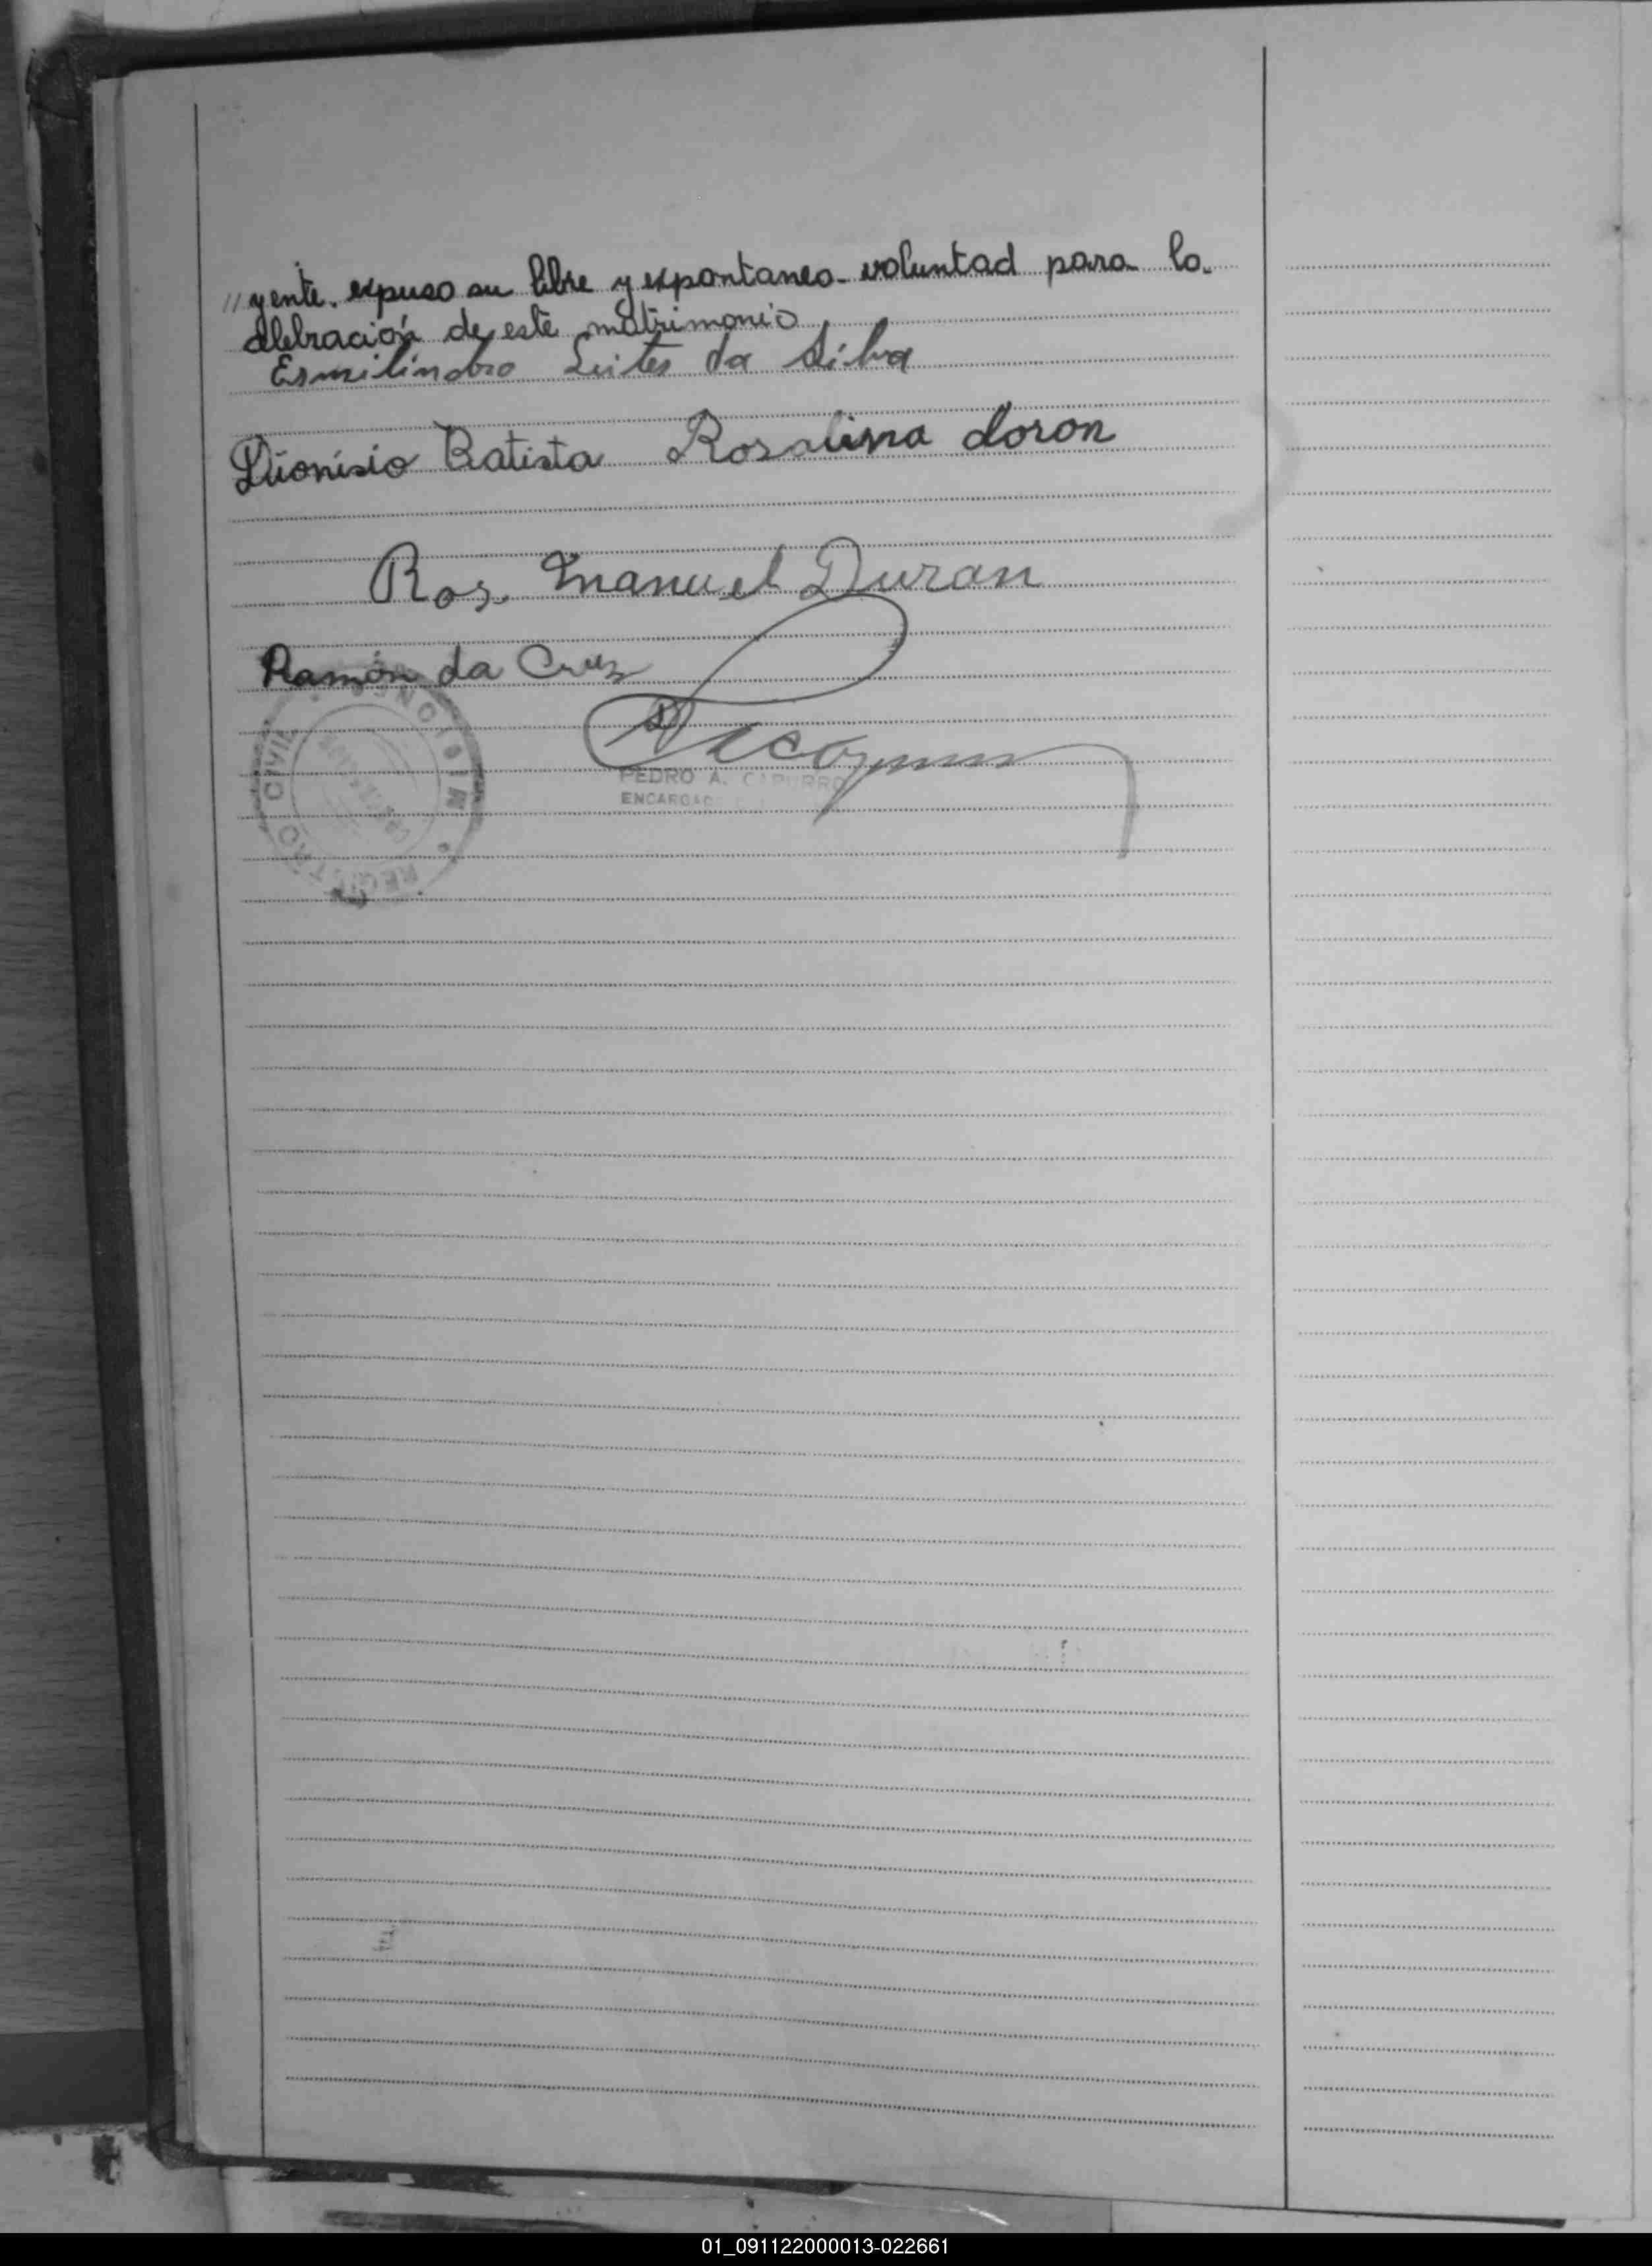 // yente. expuso su libre y expontanea voluntad para la
celebración de este matrimonio
Esmilindro Leites da Silva
Dionisio Batista Rosalina doron
Ros. Manuel Duran
Ramón da Cruz
PEDRO A. CAPURRO
ENCARGAD
REGISTRO CIVIL
01_091122000013-022661